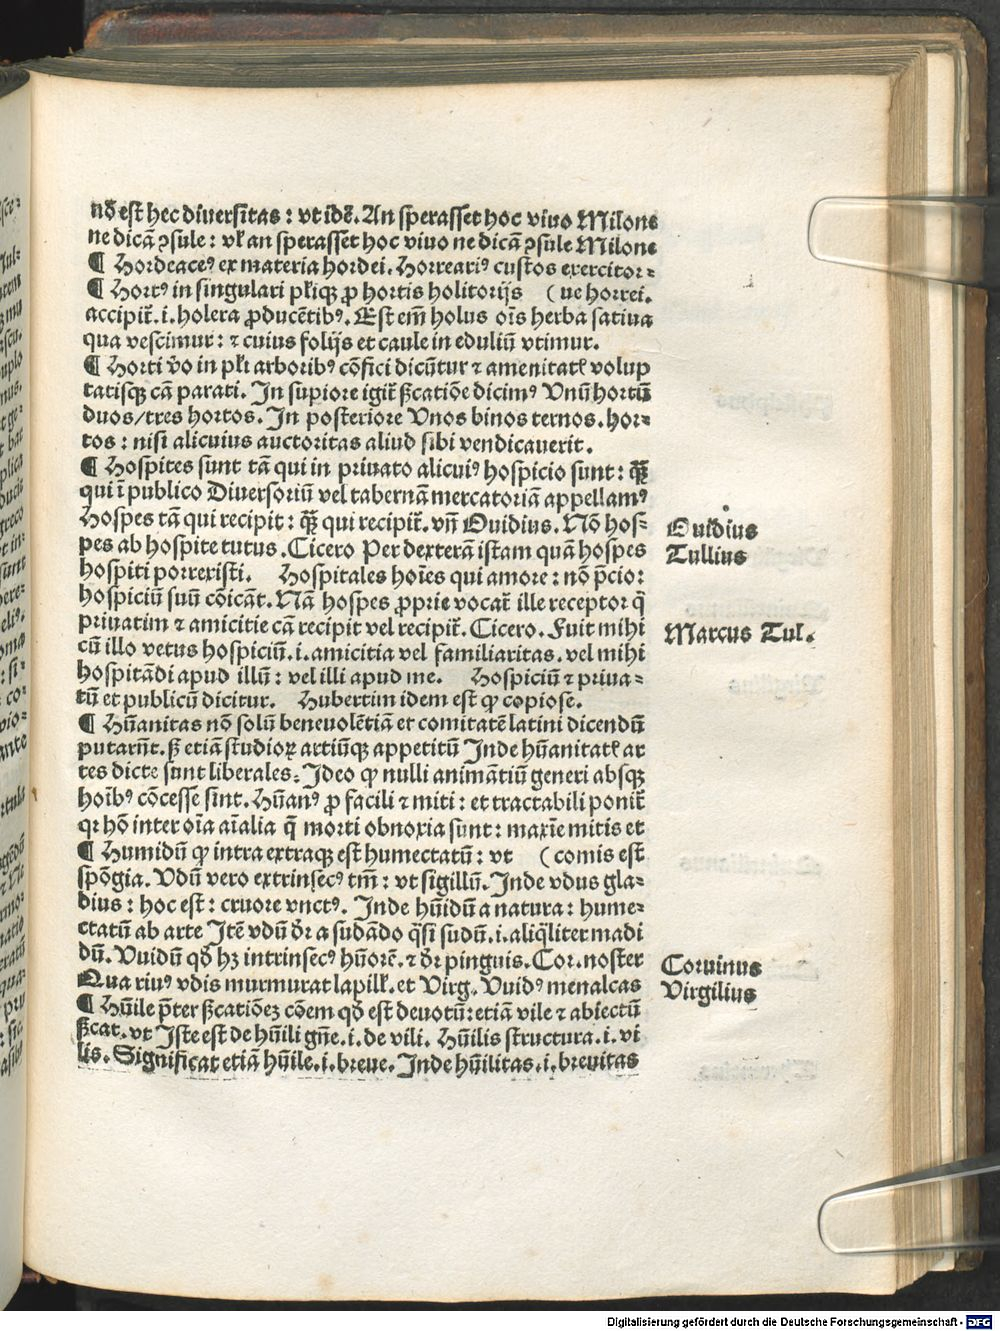 nō est hec diuersitas: vt idē. An sperasset hoc viuo Milone
ne dicā ꝯsule: vl' an sperasset hoc viuo ne dicā ꝯsule Milone
¶ Hordeaceꝰ ex materia hordei. Horreariꝰ custos exercitor-
¶ Hortꝰ in singulari pl'iqꝫ ꝓ hortis holitorijs (ue horrei.
accipit̃. i. holera ꝓducētibꝰ. Est em̄ holus oīs herba satiua
qua vescimur: ⁊ cuius folijs et caule in eduliū vtimur.
¶ Horti v̄o in pl'i arboribꝰ cōfici dicūtur ⁊ amenitatꝭ volup
tatisqꝫ cā parati. In supiore igit̃ ß̃catiōe dicimꝰ Vnū hortū
duos/tres hortos. In posteriore Vnos binos ternos. hor-
tos: nisi alicuius auctoritas aliud sibi vendicauerit.
¶ Hospites sunt tā qui in priuato alicuiꝰ hospicio sunt: q̈ꝫ
qui ī publico Diuersoriū vel tabernā mercatoriā appellamꝰ
Hospes tā qui recipit: q̈ꝫ qui recipit̃. vn̄ Ouidius. Nō hos-
pes ab hospite tutus. Cicero Per dexterā istam quā hospes
hospiti porrexisti. Hospitales hoīes qui amore: nō p̄cio:
hospiciū suū cōicāt. Nā hospes ꝓprie vocat̃ ille receptor q̄
priuatim ⁊ amicitie cā recipit vel recipit̃. Cicero. Fuit mihi
cū illo vetus hospiciū. i. amicitia vel familiaritas. vel mihi
hospitādi apud illū: vel illi apud me. Hospiciū ⁊ priua-
tū et publicū dicitur. Hubertim idem est qꝫ copiose.
¶ Hūanitas nō solū beneuolētiā et comitatē latini dicendū
putarūt. ß̃ etiā studioꝝ artiūqꝫ appetitū Inde hūanitatꝭ ar
tes dicte sunt liberales. Ideo qꝫ nulli animātiū generi absqꝫ
hoībꝰ cōcesse sint. Hūanꝰ ꝓ facili ⁊ miti: et tractabili ponit̃
qꝛ hō inter oīa aīalia q̄ morti obnoxia sunt: maxīe mitis et
¶ Humidū qꝫ intra extraqꝫ est humectatū: vt (comis est
spōgia. Vdū vero extrinsecꝰ tm̄: vt sigillū. Inde vdus gla-
dius: hoc est: cruore vnctꝰ. Inde hūidū a natura: hume-
ctatū ab arte Itē vdū dr̄ a sudādo q̄si sudū. i. aliq̄liter madi
dū. Vuidū qd̄ hꝫ intrinsecꝰ hūorē. ⁊ dr̄ pinguis. Cor. noster
Qua riuꝰ vdis murmurat lapillꝭ. et Virg. Vuidꝰ menalcas
¶ Hūile p̄ter ß̃catiōeꝫ cōem qd̄ est deuotū: etiā vile ⁊ abiectū
ß̃cat. vt Iste est de hūili gn̄e. i. de vili. Hūilis structura. i. vi
lis. Significat etiā hūile. i. breue. Inde hūilitas. i. breuitas
Ouidius
Tullius
Marcus Tul.
Coruinus
Virgilius
Digitalisierung gefördert durch die Deutsche Forschungsgemeinschaft - DFG